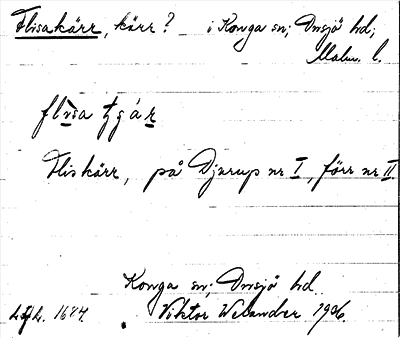 Flisakärr, kärr? i Konga sn; Onsjö hd;
Malm. l.
Fliskärr, på Djurup nr I, förr nr II.
Konga sn; Onsjö hd
Viktor Welander 1906.